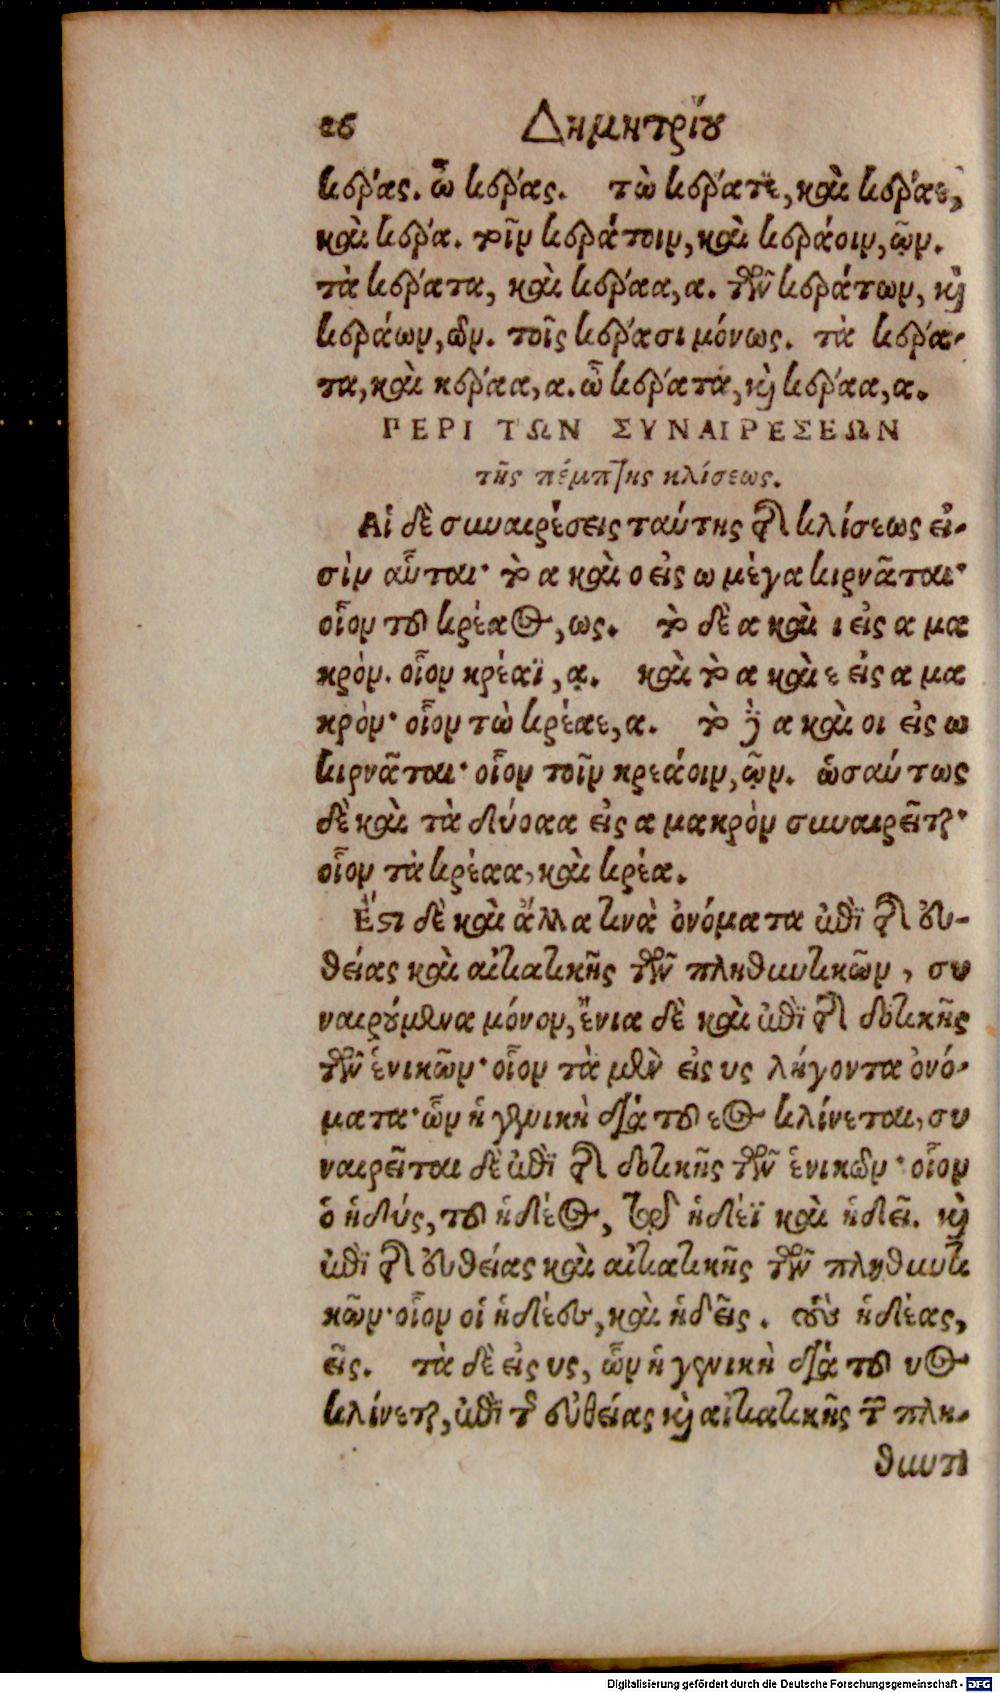 26 Δημητρίου
κέρας. ὦ κέρας. τὼ κέρατε, καὶ κέραε,
καὶ κέρα. τοῖν κεράτοιν, καὶ κεράοιν, ῷν.
τὰ κέρατα, καὶ κέραα, α. τῶν κεράτων, καὶ
κεράων, ῶν. τοῖς κέρασι μόνως. τὰ κέρα-
τα, καὶ κέραα, α. ὦ κέρατα, καὶ κέραα, α.
ΠΕΡΙ ΤΩΝ ΣΥΝΑΙΡΕΣΕΩΝ
τῆς πέμπτης κλίσεως.
Αἱ δὲ συναιρέσεις ταύτης τῆς κλίσεως εἰ-
σὶν αὗται· τὸ α καὶ ο εἰς ω μέγα κιρνᾶται·
οἷον τοῦ κρέαος, ως. τὸ δὲ α καὶ ι εἰς α μα
κρόν. οἷον κρέαϊ, ᾳ. καὶ τὸ α καὶ ε εἰς α μα
κρόν· οἷον τὼ κρέαε, α. τὸ δὲ α καὶ οι εἰς ω
κιρνᾶται· οἷον τοῖν κρεάοιν, ῷν. ὡσαύτως
δὲ καὶ τὰ δύο αα εἰς α μακρὸν συναιρεῖται·
οἷον τὰ κρέαα, καὶ κρέα.
Ἔστι δὲ καὶ ἄλλα τινὰ ὀνόματα ἐπὶ τῆς εὐ-
θείας καὶ αἰτιατικῆς τῶν πληθυντικῶν, συ
ναιρούμενα μόνον, ἔνια δὲ καὶ ἐπὶ τῆς δοτικῆς
τῶν ἑνικῶν· οἷον τὰ μὲν εἰς υς λήγοντα ὀνό-
ματα· ὧν ἡ γενικὴ διὰ τοῦ εος κλίνεται, συ
ναιρεῖται δὲ ἐπὶ τῆς δοτικῆς τῶν ἑνικῶν· οἷον
ὁ ἡδύς, τοῦ ἡδέος, τῷ ἡδέϊ καὶ ἡδεῖ. καὶ
ἐπὶ τῆς εὐθείας καὶ αἰτιατικῆς τῶν πληθυντι
κῶν· οἷον οἱ ἡδέες, καὶ ἡδεῖς. τοὺς ἡδέας,
εῖς. τὰ δὲ εἰς υς, ὧν ἡ γενικὴ διὰ τοῦ υος
κλίνεται, ἐπὶ τῆς εὐθείας καὶ αἰτιατικῆς τῶν πλη-
θυντι
Digitalisierung gefördert durch die Deutsche Forschungsgemeinschaft - DFG